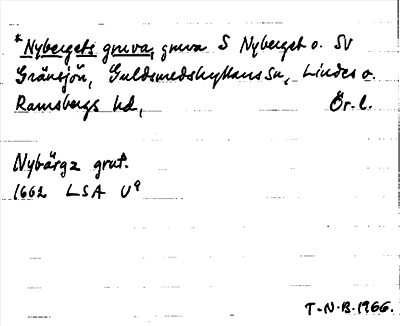 *Nybergets gruva, gruva S Nyberget o. SV
Gränsjön, Guldsmedshyttans sn, Lindes o.
Ramsbergs hd, Ör. l.
Nybärgz gruf.
1662 LSA U9
T.N.B. 1966.